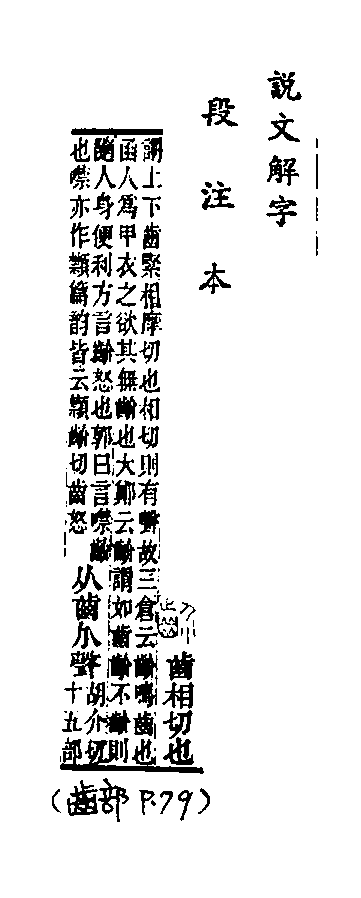 說文解字
段注本
齒相切也
謂上下齒緊相摩切也相切則有聲故三倉云齘鳴齒也
函人為甲衣之欲其無齘也大鄭云齘謂如齒齘不齘則
隨人身便利方言齘怒也郭曰言噤齘
也噤亦作類篇韵皆云齘切齒怒
从齒介聲
胡介切
十五部
(齒部 P.79)